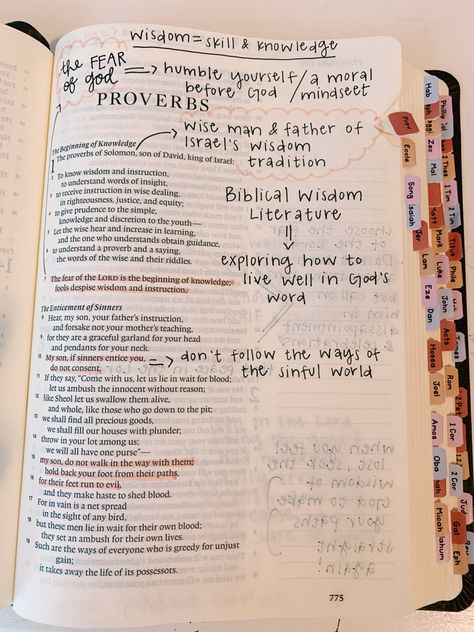 Wisdom = skill & knowledge
the FEAR
of God => humble yourself / a moral
before God / mindset
PROVERBS
wise man & father of
Israel's wisdom
tradition
The Beginning of Knowledge
1 The proverbs of Solomon, son of David, king of Israel:
2 To know wisdom and instruction,
to understand words of insight,
3 to receive instruction in wise dealing,
in righteousness, justice, and equity;
4 to give prudence to the simple,
knowledge and discretion to the youth—
5 Let the wise hear and increase in learning,
and the one who understands obtain guidance,
6 to understand a proverb and a saying,
the words of the wise and their riddles.
7 The fear of the LORD is the beginning of knowledge;
fools despise wisdom and instruction.
Biblical Wisdom
Literature
exploring how to
live well in God's
word
The Enticement of Sinners
8 Hear, my son, your father's instruction,
and forsake not your mother's teaching,
9 for they are a graceful garland for your head
and pendants for your neck.
10 My son, if sinners entice you,
do not consent.
=> don't follow the ways of
the sinful world
11 If they say, "Come with us, let us lie in wait for blood;
let us ambush the innocent without reason;
12 like Sheol let us swallow them alive,
and whole, like those who go down to the pit;
13 we shall find all precious goods,
we shall fill our houses with plunder;
14 throw in your lot among us;
we will all have one purse"—
15 my son, do not walk in the way with them;
hold back your foot from their paths,
16 for their feet run to evil,
and they make haste to shed blood.
17 For in vain is a net spread
in the sight of any bird,
18 but these men lie in wait for their own blood;
they set an ambush for their own lives.
19 Such are the ways of everyone who is greedy for unjust
gain;
it takes away the life of its possessors.
775
Prov
Eccle
Song
Isaiah
Jer
Lam
Eze
Dan
Hosea
Joel
Amos
Oba
Micah
Nahum
Hab
Zec
Mal
Matt
Mark
Luke
John
Acts
Rom
1 Cor
2 Cor
Gal
Eph
Phil
Col
1 Tim
2 Tim
Titus
Phile